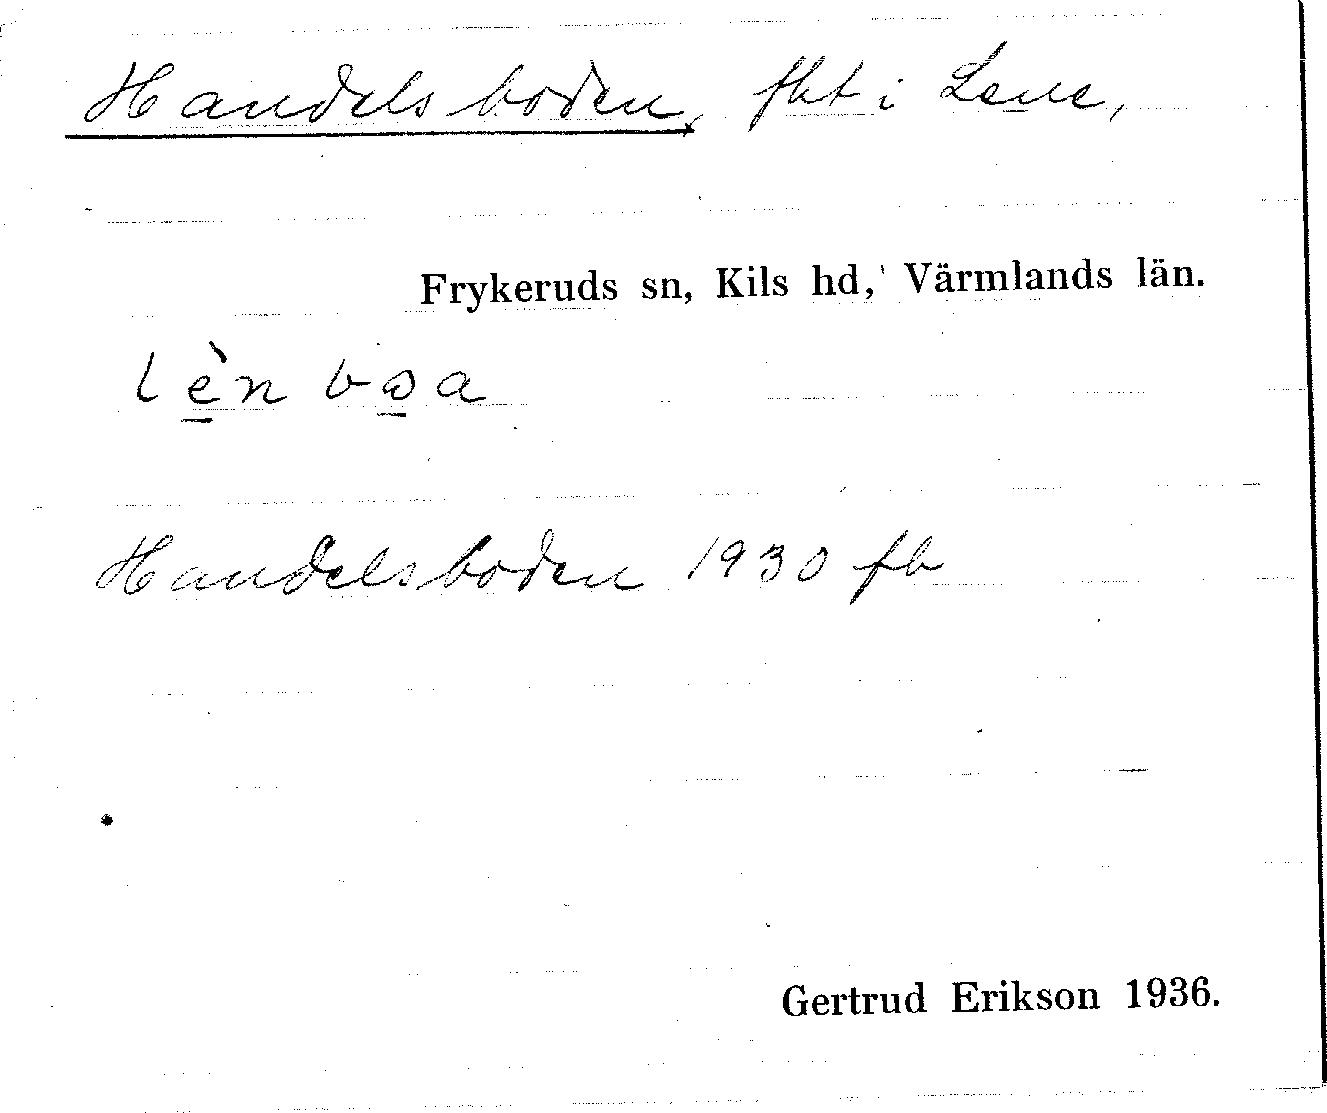 Handelsboden, fht i Lene,
Frykeruds sn, Kils hd, Värmlands län.
lèn
Handelsboden 1930 fb
Gertrud Erikson 1936.